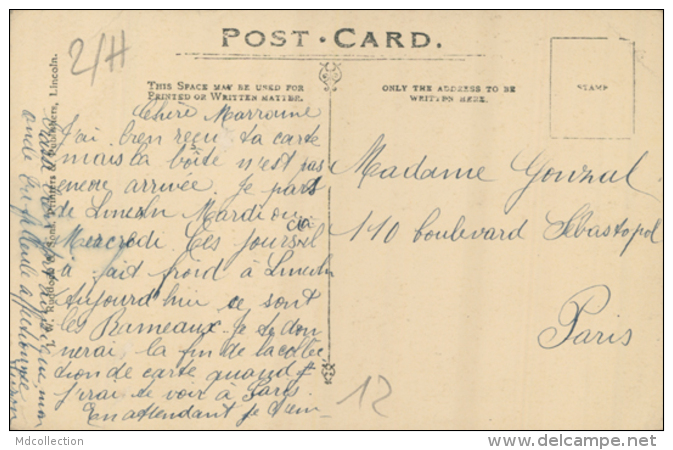 2/H
POST · CARD.
THIS SPACE MAY BE USED FOR
PRINTED OR WRITTEN MATTER.
ONLY THE ADDRESS TO BE
WRITTEN HERE.
STAMP
Chère Marraine
J'ai bien reçu ta carte
mais la boîte n'est pas
encore arrivée. Je pars
de Lincoln Mardi ou
Mercredi Ces jours ci il
a fait froid à Lincoln
Aujourd'hui ce sont
les Rameaux. Je te don
nerai la fin de la collec
tion de carte quand
j'irai te voir à Paris.
En attendant je t'em
affectionnée
Madame Gouzal
110 boulevard Sébastopol
Paris
12
Printers & Publishers, Lincoln.
Mdcollection
www.delcampe.net